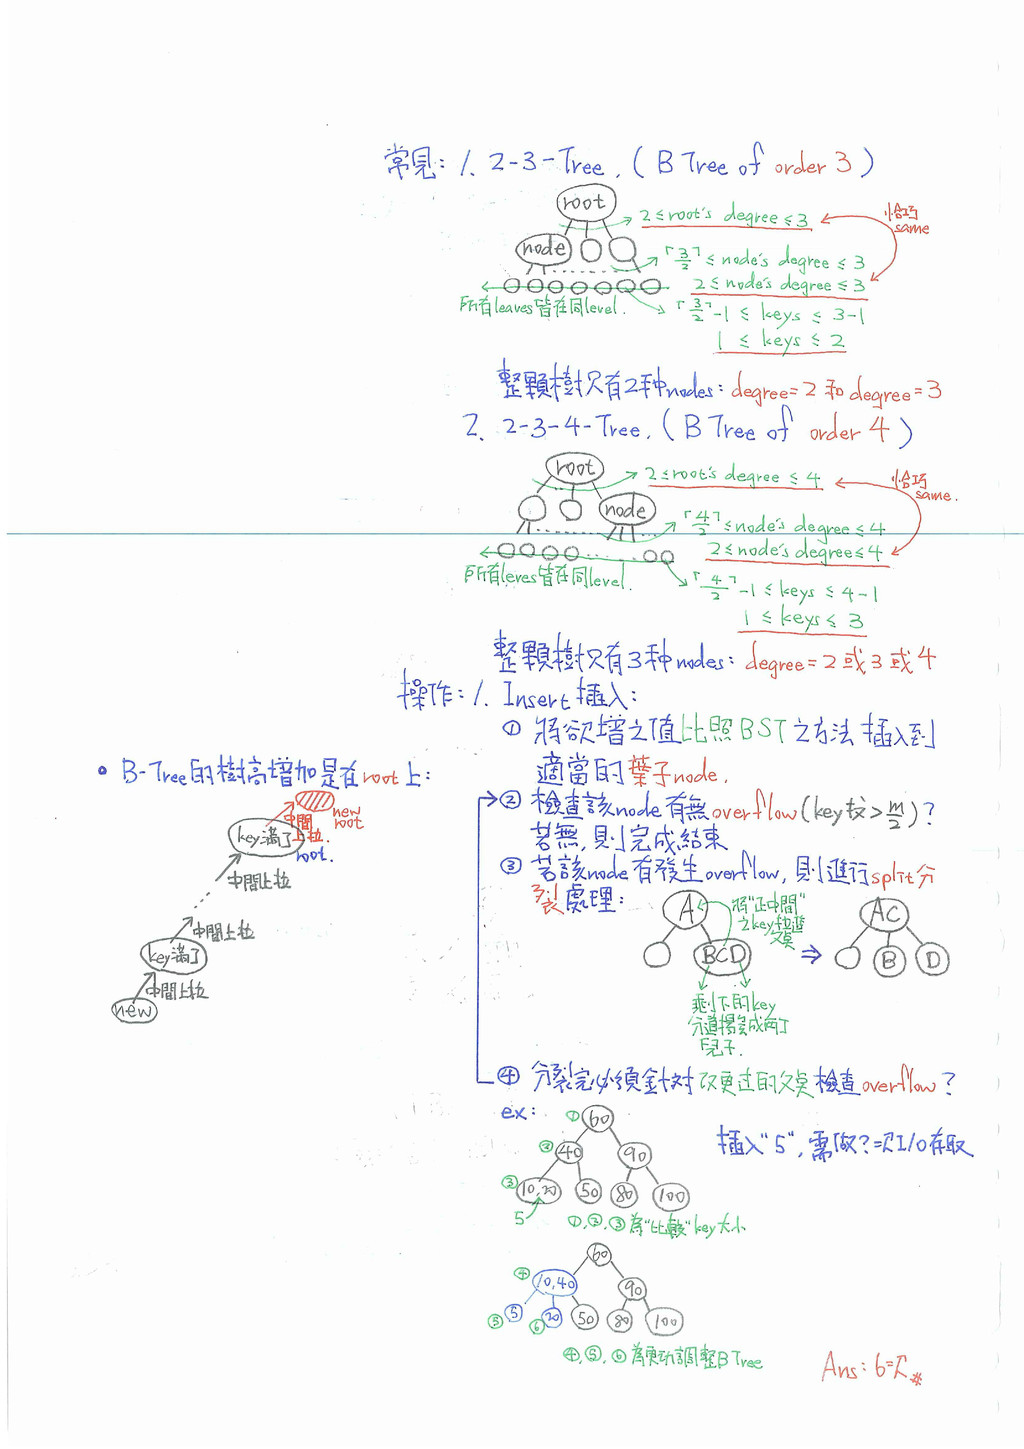 常見：1. 2-3-Tree. ( B Tree of order 3 )
root
2 ≤ root's degree ≤ 3
恰巧
same
node
⌈3/2⌉ ≤ node's degree ≤ 3
2 ≤ node's degree ≤ 3
所有leaves皆在同level.
⌈3/2⌉-1 ≤ keys ≤ 3-1
1 ≤ keys ≤ 2
整顆樹只有2种nodes：degree=2 和 degree=3
2. 2-3-4-Tree. ( B Tree of order 4 )
root
2 ≤ root's degree ≤ 4
恰巧
same.
node
⌈4/2⌉ ≤ node's degree ≤ 4
2 ≤ node's degree ≤ 4
所有leves皆在同level.
⌈4/2⌉-1 ≤ keys ≤ 4-1
1 ≤ keys ≤ 3
整顆樹只有3种nodes：degree=2或3或4
操作：1. Insert 插入：
① 將欲增之值比照BST之方法插入到
適當的葉子node.
② 檢查該node有無overflow (key数>m/2)？
若無,則完成結束
③ 若該node有發生overflow,則進行split分
裂處理：
A
將"正中間"
之key拉進
父莫
BCD
⇒
AC
B
D
剩下的key
分道揚鑣成兩丁
兒子.
④ 分裂完必須針對改更过的父莫檢查overflow？
• B-Tree的樹高增加是在root上：
new
root
中間
上拉.
key滿了
root.
中間上拉
中間上拉
key滿了
中間上拉
new
ex：
插入"5",需做?=次I/O存取
① 60
② 40
90
③ 10,20
50
80
100
5
①,②,③為"比較"key大小
60
④ 10,40
90
⑤ 5
⑥ 20
50
80
100
④,⑤,⑥為更动調整B Tree
Ans：6=次#